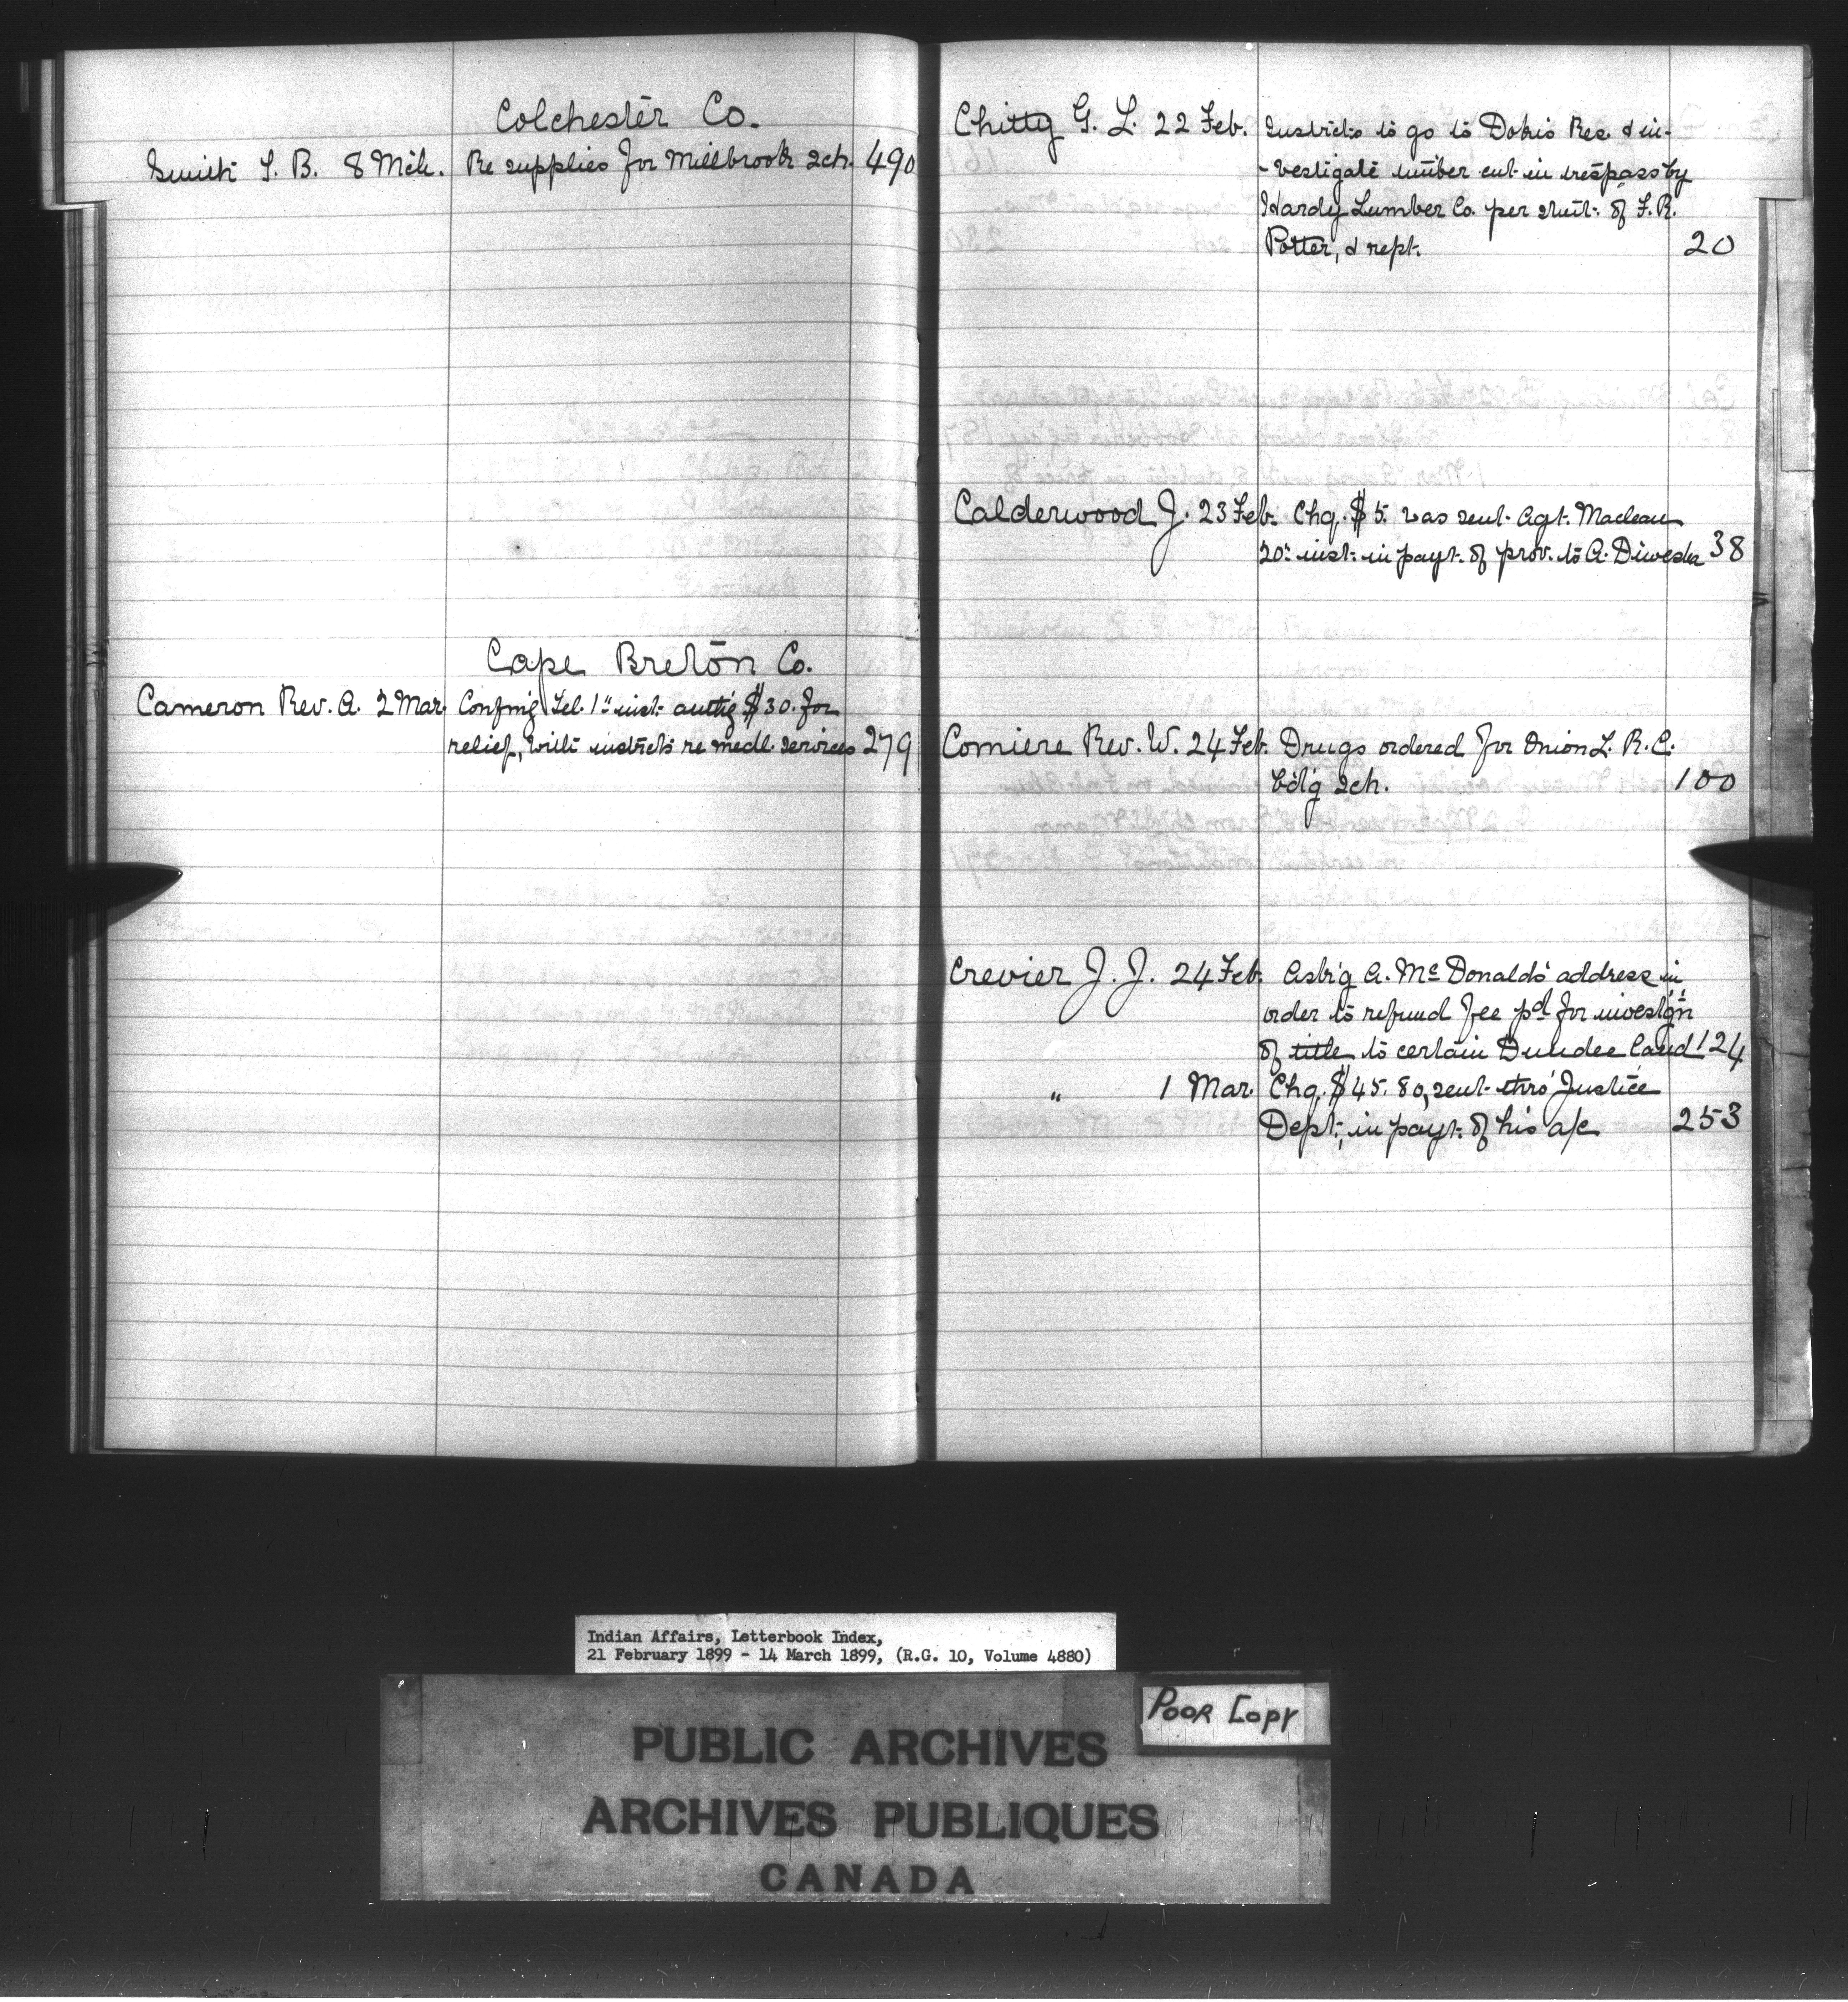 Colchester Co.
Smith T. B. 8 Mch. Re supplies for Millbrook Sch. 490
Cape Breton Co.
Cameron Rev. A. 2 Mar. Confm'g Tel. 1st inst. auth'g $30. for
relief, with instrcts re medl. services 279
Chitty G. L. 22 Feb. Instrcts to go to Dokis Res. & in-
-vestigate timber cut in trespass by
Hardy Lumber Co. per stmt. of F. R.
Potter, & rept. 20
Calderwood J. 23 Feb. Chq. $5. was sent Agt. Maclean
20th inst. in payt. of prov. to A. 38
Comiere Rev. W. 24 Feb. Drugs ordered for Onion L. R. C.
b'd'g Sch. 100
Crevier J. J. 24 Feb. Ask'g A. McDonald's address in
order to refund fee pd for investig'n
of title to certain Dundee land 124
" 1 Mar. Chq. $45.80, sent thro' Justice
Dept., in payt. of his a/c 253
Indian Affairs, Letterbook Index,
21 February 1899 - 14 March 1899, (R.G. 10, Volume 4880)
POOR COPY
PUBLIC ARCHIVES
ARCHIVES PUBLIQUES
CANADA